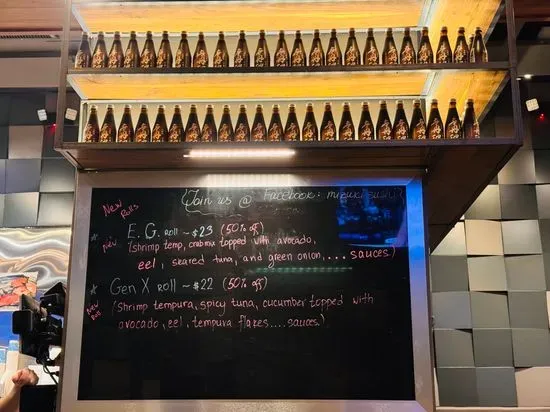 New Rolls
{Join us @ Facebook: mizuki sushi}
* New E.G. roll ~ $23 (50% off)
(shrimp temp, crab mix topped with avocado,
eel, seared tuna, and green onion,.... sauces)
* New Roll Gen X roll ~ $22 (50% off)
(Shrimp tempura, spicy tuna, cucumber topped with
avocado, eel, tempura flakes....sauces.)